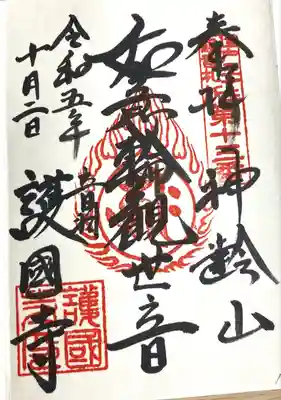 奉拝 神齢山
第十三番
如意輪觀世音
音羽 護國寺
令和五年
十月二日
護國